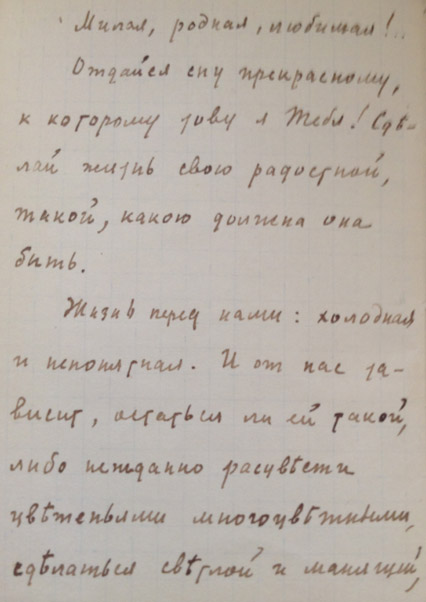 Милая, родная, любимая!..
Отдайся сну прекрасному,
к которому зову я Тебя! Сдѣ-
лай жизнь свою радостной,
такой, какою должна она
быть.
Жизнь перед нами: холодная
и непонятная. И от нас за-
висит, остаться ли ей такой,
либо нежданно расцвѣсти
цвѣтеньями многоцвѣтными,
сдѣлаться свѣтлой и манящей,